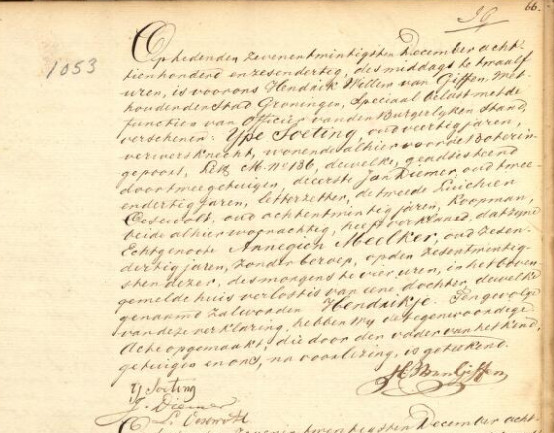 66.
1053
Op heden den zevenentwintigsten December acht-
tienhonderd en zesendertig, des middags te twaalf
uren, is voor ons Hendrik Willem van Giffen, Wet-
houder der Stad Groningen, Speciaal belast met de
functien van Officier van den Burgerlyken Stand,
verschenen: Ype Soeting, oud veertig jaren,
verwersknecht, wonende alhier voor de Boterin-
gepoort, Lett M. No 136, dewelke, geadsisteerd
door twee getuigen, de eerste Jan Diemer, oud twee-
endertig jaren, letterzetter, de tweede Luichien
oud achtentwintig jaren, Koopman,
beide alhier woonachtig, heeft verklaard, dat zyne
Echtgenoote Annegien Meelker, oud zesen-
dertig jaren, zonder beroep, op den zesentwintig-
sten dezer, des morgens te vier uren, in het boven-
gemelde huis verlost is van eene dochter, dewelke
genaamd zal worden Hendrikje. Ten gevolge
van deze verklaring, hebben wy de tegenwoordige
Acte opgemaakt, die door den vader van het kind,
getuigen en ons, na voorlezing, is geteekend.
HW van Giffen
Y Soeting
J. Diemer
December acht-